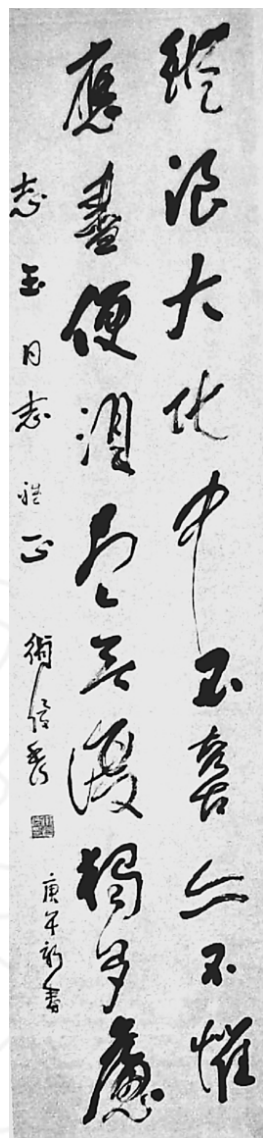 縱浪大化中不喜亦不懼
應盡便須盡無復獨多慮
志玉同志正 衛俊秀
庚午